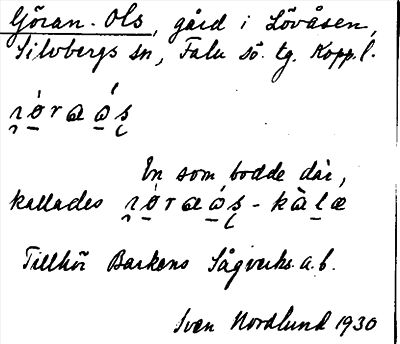 Göran-Ols, gård i Lövåsen,
Silvbergs sn, Falu sö. tg. Kopp.l.
En som bodde där,
kallades
Tillhör Barkens Sågverks a.b.
Sven Nordlund 1930